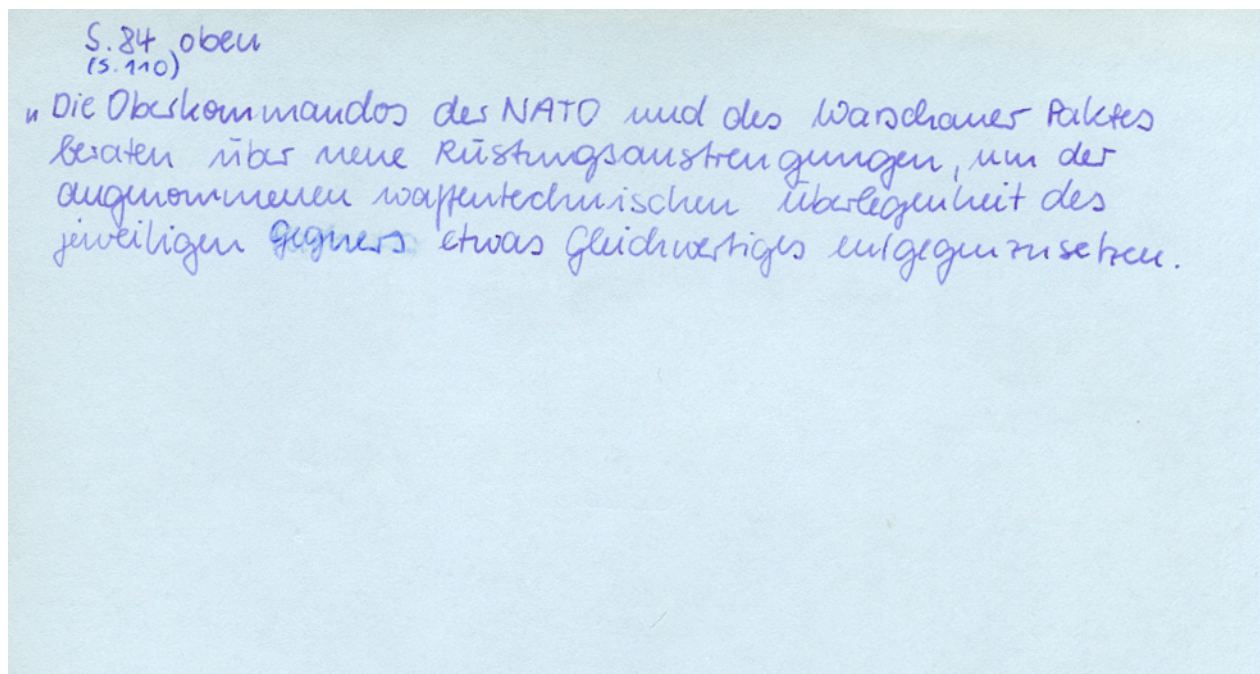 S. 84 oben
(S. 110)
„Die Oberkommandos der NATO und des Warschauer Paktes
beraten über neue Rüstungsanstrengungen, um der
angenommenen waffentechnischen Überlegenheit des
jeweiligen Gegners etwas Gleichwertiges entgegenzusetzen.